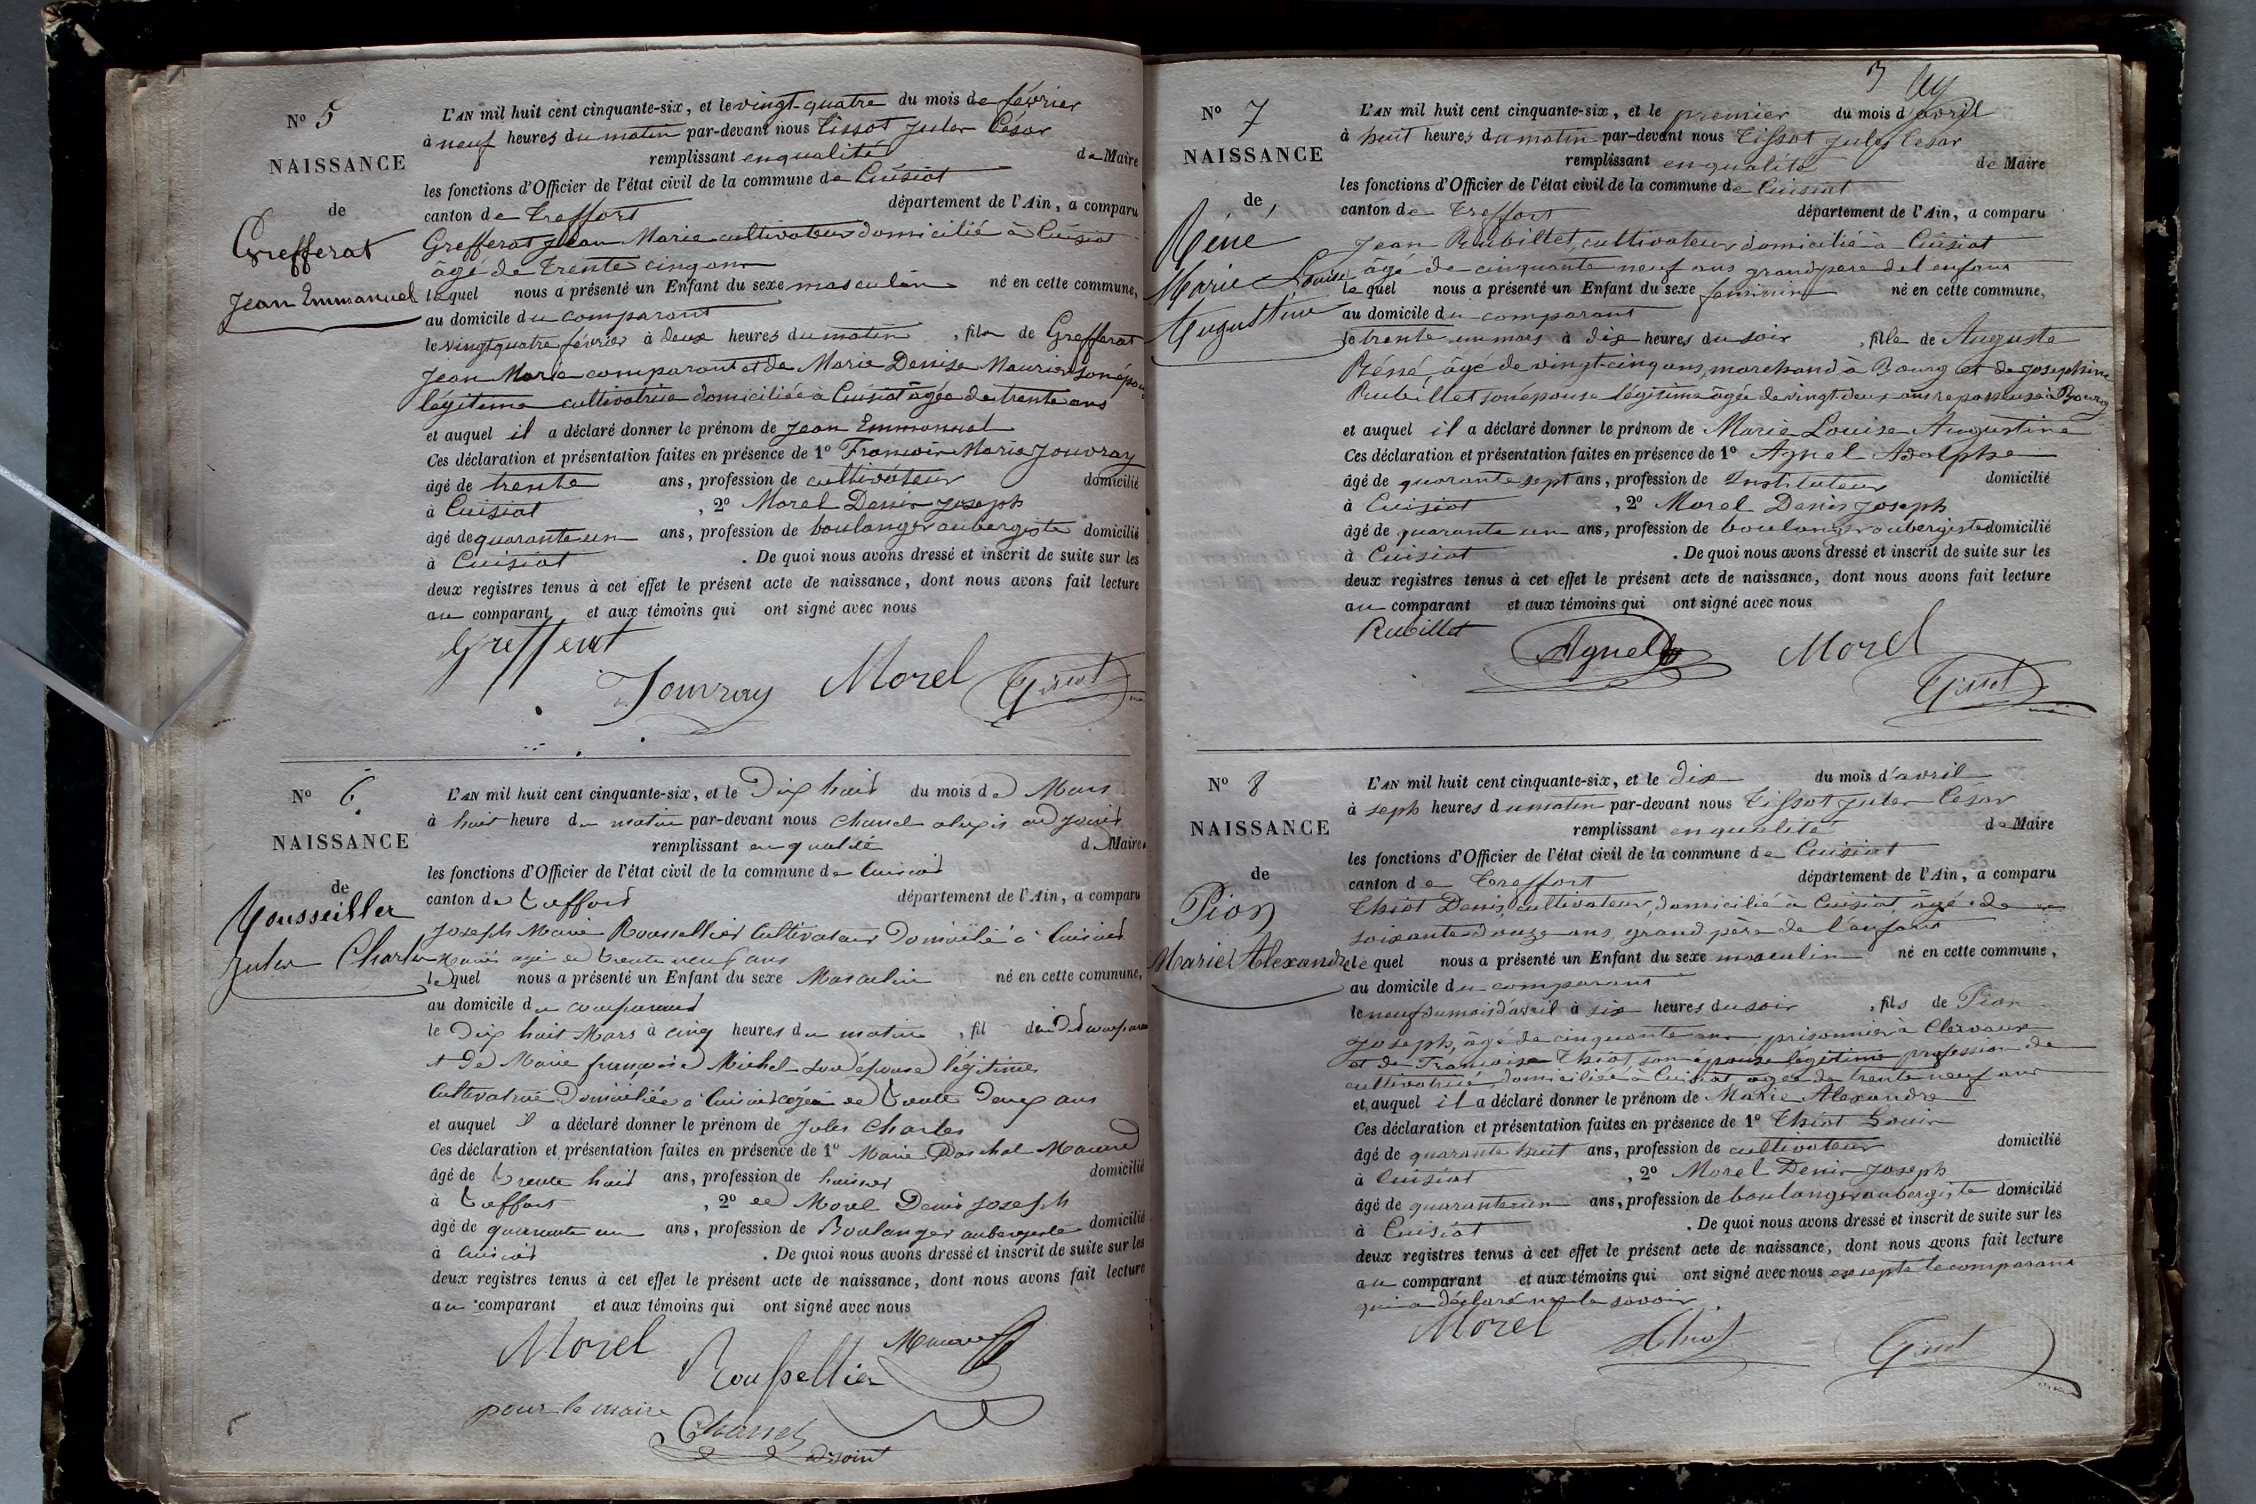 N° 5
NAISSANCE
de
Grefferat
Jean Emmanuel
L'AN mil huit cent cinquante-six, et le vingt-quatre du mois de février
à neuf heures du matin par-devant nous Tissot Jules César
remplissant en qualité de Maire
les fonctions d'Officier de l'état civil de la commune de Cuisiat
canton de Treffort département de l'Ain, a comparu
Grefferat Jean Marie cultivateur domicilié à Cuisiat
âgé de trente cinq ans
lequel nous a présenté un Enfant du sexe masculin né en cette commune,
au domicile du comparant
le vingt quatre février à deux heures du matin, fils de Grefferat
Jean Marie comparant et de Marie Denise Maurier son épouse
légitime cultivatrice domiciliée à Cuisiat âgée de trente ans
et auquel il a déclaré donner le prénom de Jean Emmanuel
Ces déclaration et présentation faites en présence de 1° François Marie Jouvray
âgé de trente ans, profession de cultivateur domicilié
à Cuisiat, 2° Morel Denis Joseph
âgé de quarante un ans, profession de boulanger aubergiste domicilié
à Cuisiat. De quoi nous avons dressé et inscrit de suite sur les
deux registres tenus à cet effet le présent acte de naissance, dont nous avons fait lecture
au comparant et aux témoins qui ont signé avec nous
Grefferat
Jouvray Morel Tissot
N° 6
NAISSANCE
de
Rousseiller
Jules Charles
L'AN mil huit cent cinquante-six, et le Dix huit du mois de Mars
à huit heure du matin par-devant nous Chanel alexis adjoint
remplissant en qualité de Maire
les fonctions d'Officier de l'état civil de la commune de Cuisiat
canton de Treffort département de l'Ain, a comparu
Joseph Marie Roussellier Cultivateur Domicilié à Cuisiat
âgé de trente neuf ans
lequel nous a présenté un Enfant du sexe Masculin né en cette commune,
au domicile du comparant
le Dix huit Mars à cinq heures du matin, fil dudit comparant
et de Marie françoise Michel son épouse légitime
Cultivatrice Domiciliée à Cuisiat âgée de trente deux ans
et auquel il a déclaré donner le prénom de Jules Charles
Ces déclaration et présentation faites en présence de 1° Marie Paschal
âgé de trente huit ans, profession de huissier domicilié
à Treffort, 2° de Morel Denis Joseph
âgé de quarante un ans, profession de Boulanger aubergiste domicilié
à Cuisiat. De quoi nous avons dressé et inscrit de suite sur les
deux registres tenus à cet effet le présent acte de naissance, dont nous avons fait lecture
au comparant et aux témoins qui ont signé avec nous
Morel
Roussellier
pour le maire
Chanel
adjoint
3
N° 7
NAISSANCE
de
Réné
Marie Louise
Augustine
L'AN mil huit cent cinquante-six, et le premier du mois d'avril
à huit heures du matin par-devant nous Tissot Jules César
remplissant en qualité de Maire
les fonctions d'Officier de l'état civil de la commune de Cuisiat
canton de Treffort département de l'Ain, a comparu
Jean Rubillet, cultivateur domicilié à Cuisiat
âgé de cinquante neuf ans grand père de l'enfant
lequel nous a présenté un Enfant du sexe féminin né en cette commune,
au domicile du comparant
le trente un mars à dix heures du soir, fille de Auguste
Réné, âgé de vingt-cinq ans, marchand à Bourg et de Josephine
Rubillet son épouse légitime âgée de vingt deux ans repasseuse à Bourg
et auquel il a déclaré donner le prénom de Marie Louise Augustine
Ces déclaration et présentation faites en présence de 1° Agnel Adolphe
âgé de quarante sept ans, profession de Instituteur domicilié
à Cuisiat, 2° Morel Denis Joseph
âgé de quarante un ans, profession de boulanger aubergiste domicilié
à Cuisiat. De quoi nous avons dressé et inscrit de suite sur les
deux registres tenus à cet effet le présent acte de naissance, dont nous avons fait lecture
au comparant et aux témoins qui ont signé avec nous
Rubillet Agnel Morel
Tissot
N° 8
NAISSANCE
de
Pion
Marie Alexandre
L'AN mil huit cent cinquante-six, et le dix du mois d'avril
à seph heures du matin par-devant nous Tissot Jules César
remplissant en qualité de Maire
les fonctions d'Officier de l'état civil de la commune de Cuisiat
canton de Treffort département de l'Ain, a comparu
Thiot Denis, cultivateur, domicilié à Cuisiat, âgé de
soixante douze ans, grand père de l'enfant
lequel nous a présenté un Enfant du sexe masculin né en cette commune,
au domicile du comparant
le neuf du mois d'avril à six heures du soir, fils de Pion
Joseph, âgé de cinquante ans prisonnier à Clervaux
et de Françoise Thiot, son épouse légitime profession de
cultivatrice, domiciliée à Cuisiat, âgée de trente neuf ans
et auquel il a déclaré donner le prénom de Marie Alexandre
Ces déclaration et présentation faites en présence de 1° Thiot Louis
âgé de quarante huit ans, profession de cultivateur domicilié
à Cuisiat, 2° Morel Denis Joseph
âgé de quarante un ans, profession de boulanger aubergiste domicilié
à Cuisiat. De quoi nous avons dressé et inscrit de suite sur les
deux registres tenus à cet effet le présent acte de naissance, dont nous avons fait lecture
au comparant et aux témoins qui ont signé avec nous excepté le comparant
qui a déclaré ne le savoir.
Morel Thiot Tissot